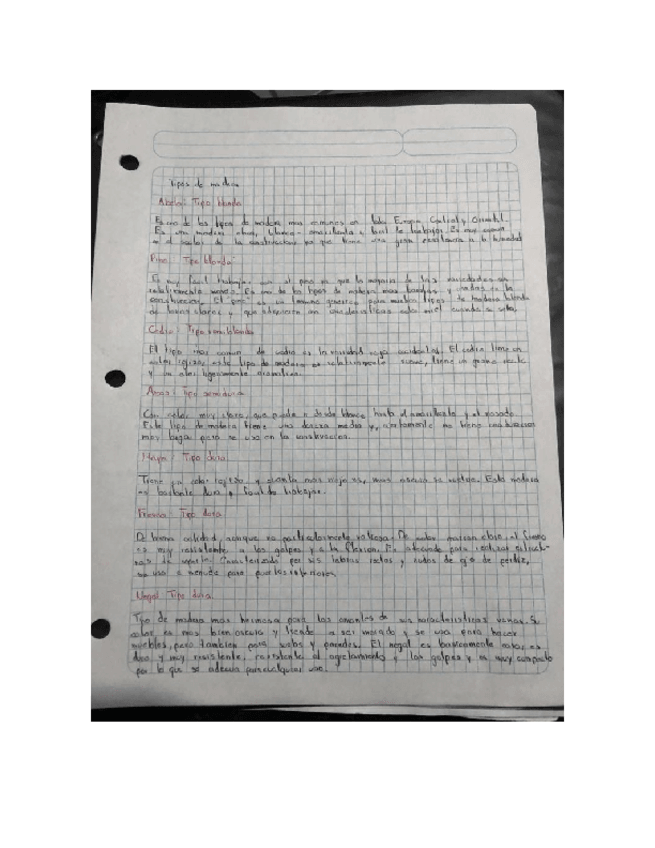 Tipos de madera
Abeto: Tipo blanda
Es uno de los tipos de madera mas comunes en toda Europa Central y Oriental.
Es una madera clara, blanca - amarillenta y facil de trabajar. Es muy comun
en el sector de la construccion ya que tiene una gran resistencia a la humedad
Pino: Tipo blanda
Es muy facil trabajar con el pino ya que la mayoria de las variedades son
relativamente Es uno de los tipos de madera mas y usadas en la
construccion. El "pino" es un termino generico para muchos tipos de madera blanda
de tonos claros y que adquieren un color miel cuando se
Cedro: Tipo semiblanda
El tipo mas comun de cedro es la variedad roja occidental. El cedro tiene un
color rojizo, este tipo de madera es relativamente suave, tiene un grano recto
y un olor ligeramente aromatico.
Tipo semidura
Con color muy claro, que puede ir desde blanco hasta el amarillento y el rosado
Este tipo de madera tiene una dureza media y, ciertamente no tiene
mas bajas para su uso en la construccion.
Tipo dura
Tiene un color rojizo y cuanto mas viejo es, mas oscuro se vuelve. Esta madera
es bastante dura y facil de trabajar.
Fresno: Tipo dura
De buena calidad, aunque no particularmente valiosa. De color marron claro, el fresno
es muy resistente a los golpes y a la flexion. Es adecuado para realizar
de Caracterizado por sus fibras rectas y nudos de ojo de perdiz,
se usa a menudo para interiores.
Nogal: Tipo dura
Tipo de madera mas hermosa para los amantes de sus caracteristicas venas. Su
color es mas bien oscuro y tiende a ser morado y se usa para hacer
muebles, pero tambien para suelos y paredes. El nogal es basicamente madera
dura y muy resistente, resistente al agrietamiento y los golpes y es muy compacto
por lo que se adecua para cualquier uso.